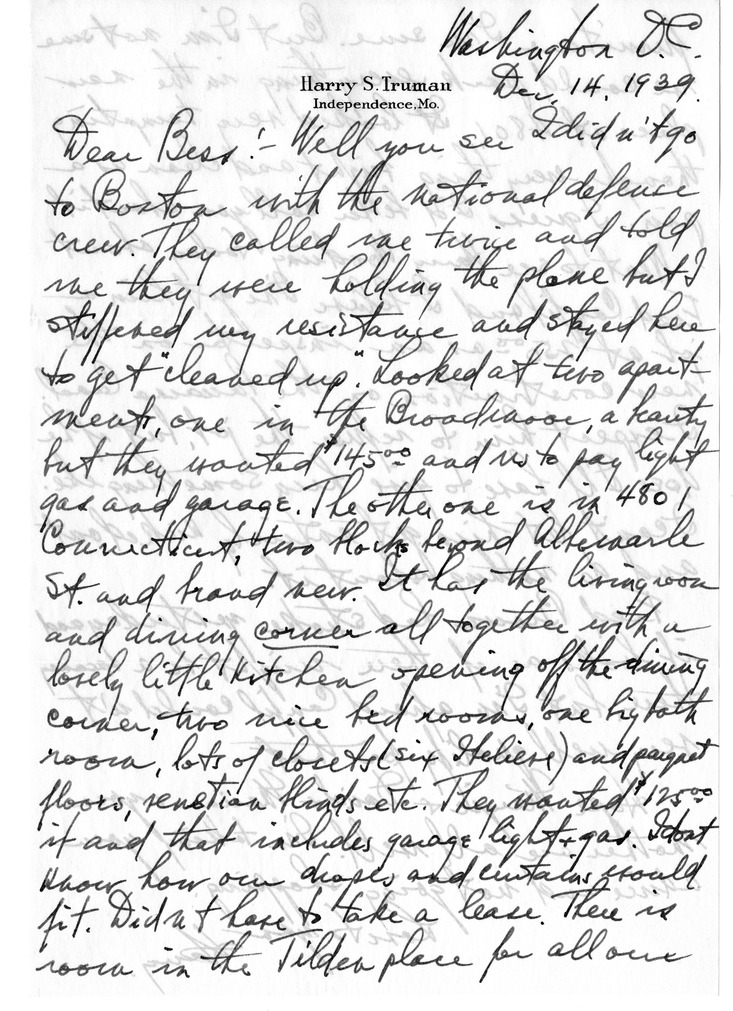 Washington D.C.
Dec, 14, 1939.
Harry S. Truman
Independence, Mo.
Dear Bess:- Well you see I didn't go
to Boston with the national defense
crew. They called me twice and told
me they were holding the plane but I
stiffened my resistance and stayed here
to get "cleaned up". Looked at two apart-
ments, one in the Broadmoor, a beauty
but they wanted $145.00 and us to pay light
gas and garage. The other one is in 4801
Connecticut, two blocks beyond Albemarle
St. and brand new. It has the living room
and dining corner all together with a
lovely little kitchen opening off the dining
corner, two nice bed rooms, one big bath
room, lots of closets (six I believe) and parquet
floors, venetian blinds etc. They wanted $125.00
it and that includes garage light + gas. I dont
know how our drapes and curtains would
fit. Didn't have to take a lease. There is
room in the Tilden place for all our